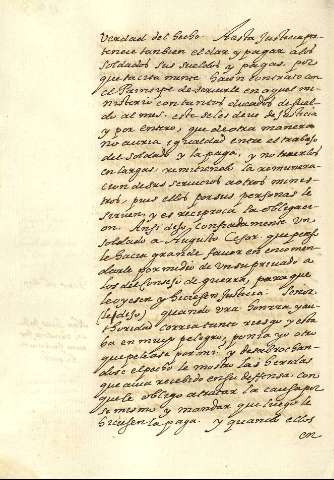 verdad del hecho. A esta Justicia per
tenece tambien el dar y pagar a los
soldados sus sueldos y pagas. por
que tacita mente hacen contrato con
el Principe de servirle en aquel mi
nisterio con tantos ducados de suel
do al mes. este se les deve de Justicia
y por entero, que de otra manera
no auria igualdad entre el trabajo
del soldado y la paga, y no traerlos
en largas, remitiendo la remunera
cion de sus servicios a otros minis
tros, pues ellos por sus personas le
siruen, y es reciproca la obligac
ion. Ansi dijo confiadamente un
soldado a Augusto Cesar, que pens
le hacia grande favor en encomen
darle por medio de un su privado a
los del Consejo de guerra, para que
le oyesen y hiciesen Justicia: Señor
(le dijo) quando vra honrra y au
thoridad corria tanto riesgo y esta
ba en muy peligro, ponia yo otro
que pelease por mi? y desabrochan
dose el pecho le mostro las heridas
que auia recebido en su deffensa. con
que le obligo a tratar la causa por
si mismo y mandar que luego le
hiciesen la paga. y quando ellos
en